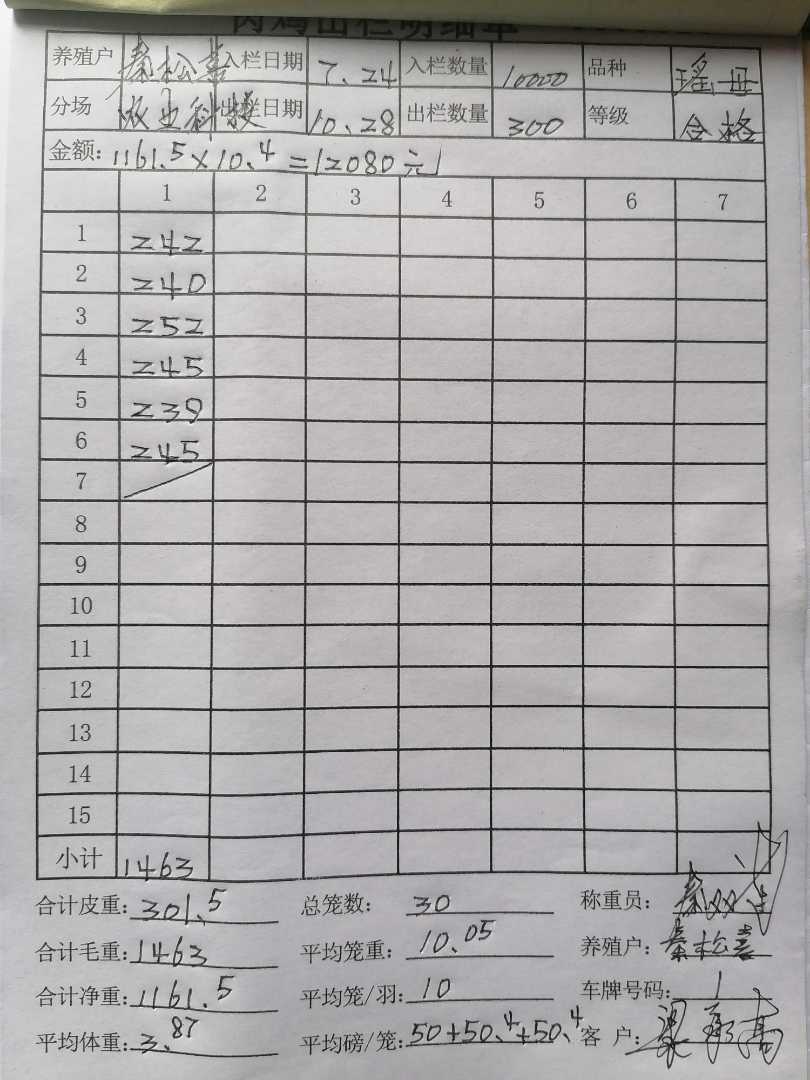 肉鸡出栏明细单
养殖户 秦松喜 入栏日期 7.24 入栏数量 10000 品种 瑶母
分场 牧业科技 出栏日期 10.28 出栏数量 300 等级 合格
金额: 1161.5×10.4=12080元
1 2 3 4 5 6 7
1 242
2 240
3 252
4 245
5 239
6 245
7
8
9
10
11
12
13
14
15
小计 1463
合计皮重: 301.5 总笼数: 30 称重员: 秦
合计毛重: 1463 平均笼重: 10.05 养殖户: 秦松喜
合计净重: 1161.5 平均笼/羽: 10 车牌号码: 1
平均体重: 3.87 平均磅/笼: 50+50.4+50.4 客 户: 梁